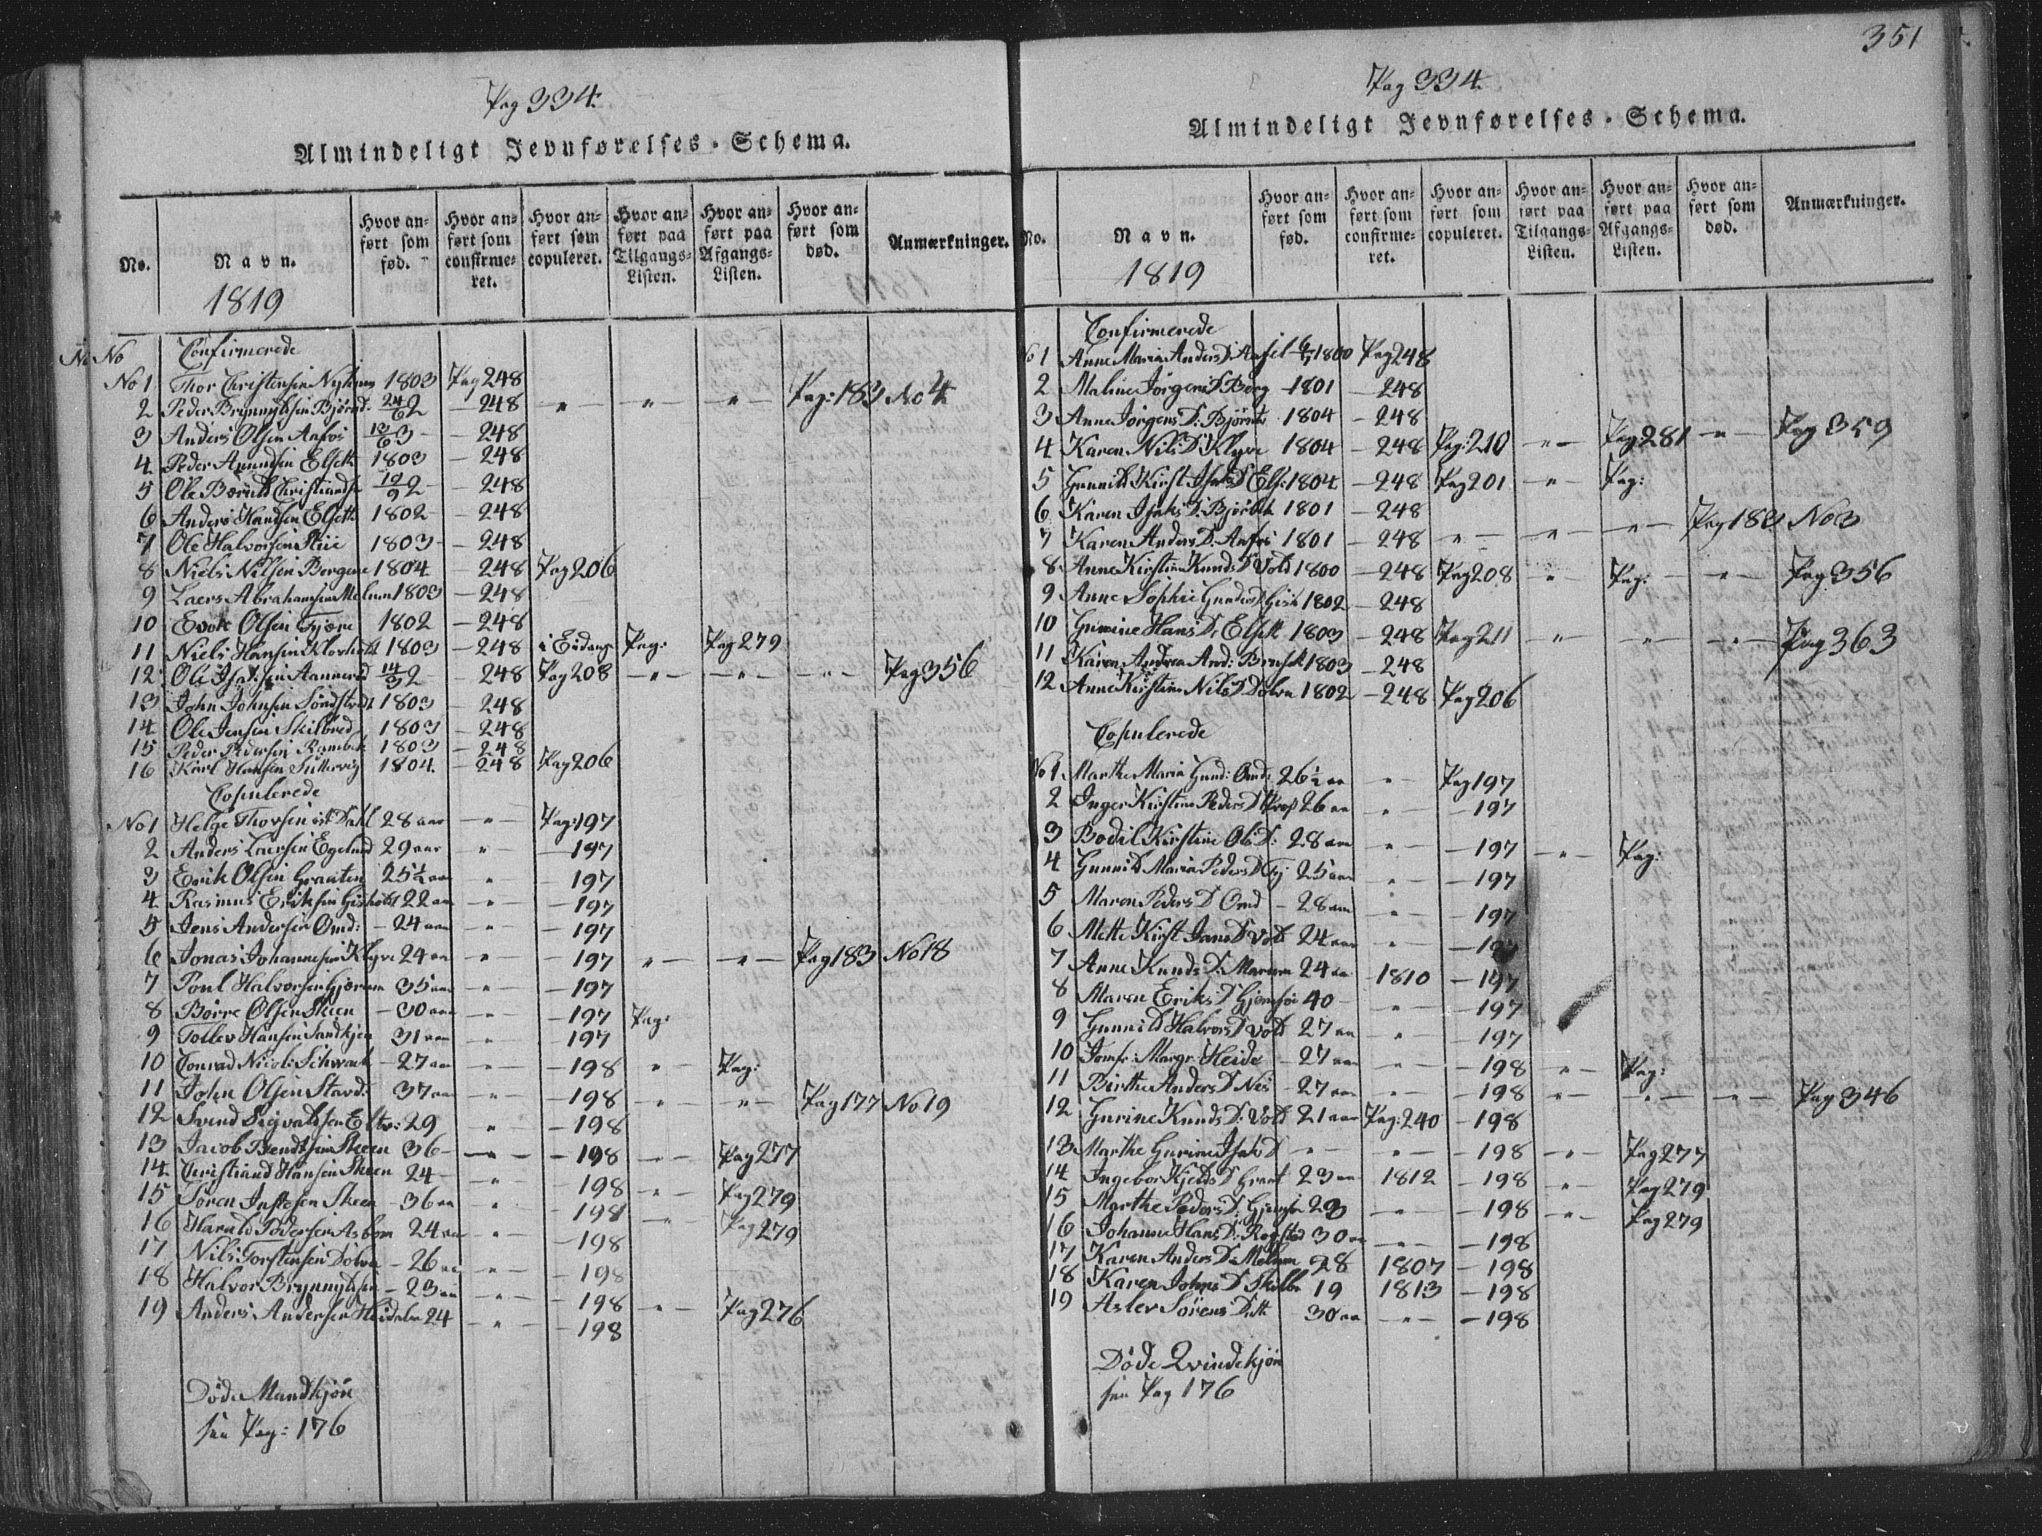 Pag 334.
Almindeligt Jevnførelses-Schema.
No. Navn. Hvor anført som fød. Hvor anført som confirmeret. Hvor anført som copuleret. Hvor anført paa Tilgangs-Listen. Hvor anført paa Afgangs-Listen. Hvor anført som død. Anmærkninger.
1819
No Confirmerede
No 1 Thor Christensen 1803 Pag 248
2 Peder Brynnylsen 24/6 2 — 248 " " " Pag: 183 No 4
3 Anders Olsen Aafos 13/6 3 — 248
4 Peder Amundsen Elseth 1803 — 248
5 Ole 12/9 2 — 248
6 Anders Hansen Elseth 1802 — 248
7 Ole Halvorsen 1803 — 248
8 Niels Nilsen Bergene 1804 — 248 Pag 206
9 Laers Abrahamsen Melum 1803 — 248
10 Evole Olsen Fjære 1802 — 248
11 Niels Hansen Klovholt 1803 — 248 Pag: Pag 279
12 Ole Isaksen Aannerød 14/3 2 — 248 Pag 208 — " — — " — — " — Pag 356
13 John Johnsen 1803 — 248
14 Ole Jensen Skilbred 1803 — 248
15 Peder Pedersen 1803 — 248
16 Karl Hansen 1804 — 248 Pag 206
Copulerede
No 1 Helge Thorsen Dahl 28 aar — " — Pag: 197
2 Anders Laersen Egelund 29 aar " — 197
3 Erik Olsen Graaten 25½ aar " — 197
4 Rasmus Eriksen Gisholt 22 aar " — 197
5 Jens Andersen Omd: — 24 aar — " — — 197
6 Jonas Johannesen Klyve 24 aar " — 197 " — " — Pag 183 No 18
7 Poul Halvorsen Gjersem 35 aar " — 197
8 Børre Olsen Skeen — 30 aar — " — — 197 Pag:
9 Tollev Hansen Sandkjen 31 aar " 197
10 Conrad Nicol: Schwach — 27 aar — " — — 198 " Pag:
11 John Olsen Stavd: 37 aar — " — — 198 " — " — Pag 177 No 19
12 Svend Sigvaldsen 29 " — 198
13 Jacob Bendtsen Skeen 36 — — " — — 198 — " — Pag 277
14 Christiand Hansen Skeen 24 — — " — 198 " — Pag 279
15 Søren Justesen Skeen — 36 aar " 198 — " — Pag 279
16 Harald Pedersen Asbom 24 aar " — 198
17 Nils Torstensen Dolva — 26 aar — " — 198
18 Halvor Brynnylsen — 23 aar — " — — 198 " — Pag 276
19 Anders Andersen 24 — " — — 198
Døde Mandkjøn
see Pag: 176
351
Pag 334.
Almindeligt Jevnførelses-Schema.
No. Navn. Hvor anført som fød. Hvor anført som confirmeret. Hvor anført som copuleret. Hvor anført paa Tilgangs-Listen. Hvor anført paa Afgangs-Listen. Hvor anført som død. Anmærkninger.
1819
Confirmerede
No 1 Anne Maria Anders D. 1800 Pag 248
2 Maline Jørgens D. Borg — 1801 — 248
3 Anne Jørgens D: 1804 — 248
4 Karen Nils D Klyve 1804 — 248 Pag: 210 — " — Pag 281 — " — Pag 359
5 Gunnild Kirst. 1804 — 248 Pag 201 — " — Pag:
6 Karen Isaks D: 1801 — 248
7 Karen Anders D. Aafos 1801 — 248 — " — " — " — Pag 183 No 3
8 Anne Kirstine Knuds D Vold 1800 — 248 Pag 208 " — Pag: — " — Pag 356
9 Anne Sophie Gunders D 1802 — 248
10 Gunine Hans D: Elseth 1803 — 248 Pag 211 — " — — " — — " — Pag 363
11 Karen Andrea And: 1803 — 248
12 Anne Kirstine Nils D Dolva 1802 — 248 Pag 206
Copulerede
No 1 Marthe Maria Gund: Omd: 26½ aar " — Pag 197
2 Inger Kirstine Peders D 26 aar — " — — 197
3 Bodil Kirstine Ols D: — 28 aar " — — 197 — " — Pag:
4 Gunnild Maria Peders D 25 aar " — — 197
5 Maren Peders D Omd — 28 aar — " — — 197
6 Mette Kirst. Jans D Vold 24 aar " — — 197
7 Anne Knuds D: 24 aar 1810 — 197
8 Maren Eriks D Gjemsøe 40 — — " — — 197
9 Gunnild Halvors D Vold 27 aar " — 197
10 Jomfr: Margr: Heide — 27 aar — " — — 198 — " — Pag:
11 Birthe Anders D Nes — 27 aar " — — 198 — " — — " — — " — Pag 346
12 Gurine Knuds D: Vold 21 aar Pag: 240 — 198
13 Marthe Gurine Isaks D — " — — " — — 198 — " — Pag 277
14 Ingebor Kjelds D 23 aar 1812 — 198 " — Pag 279
15 Marthe Peders D. Gjemsøe 29 — " — — 198 — " — Pag 279
16 Johanne Hans D: 30 aar — " — — 198
17 Karen Anders D: Melum 28 1807 — 198
18 Karen Johns D Skilbr 19 1813 — 198
19 Aslev Sørens Datt 30 aar — " — — 198
Døde Qvindekjøn
see Pag 176